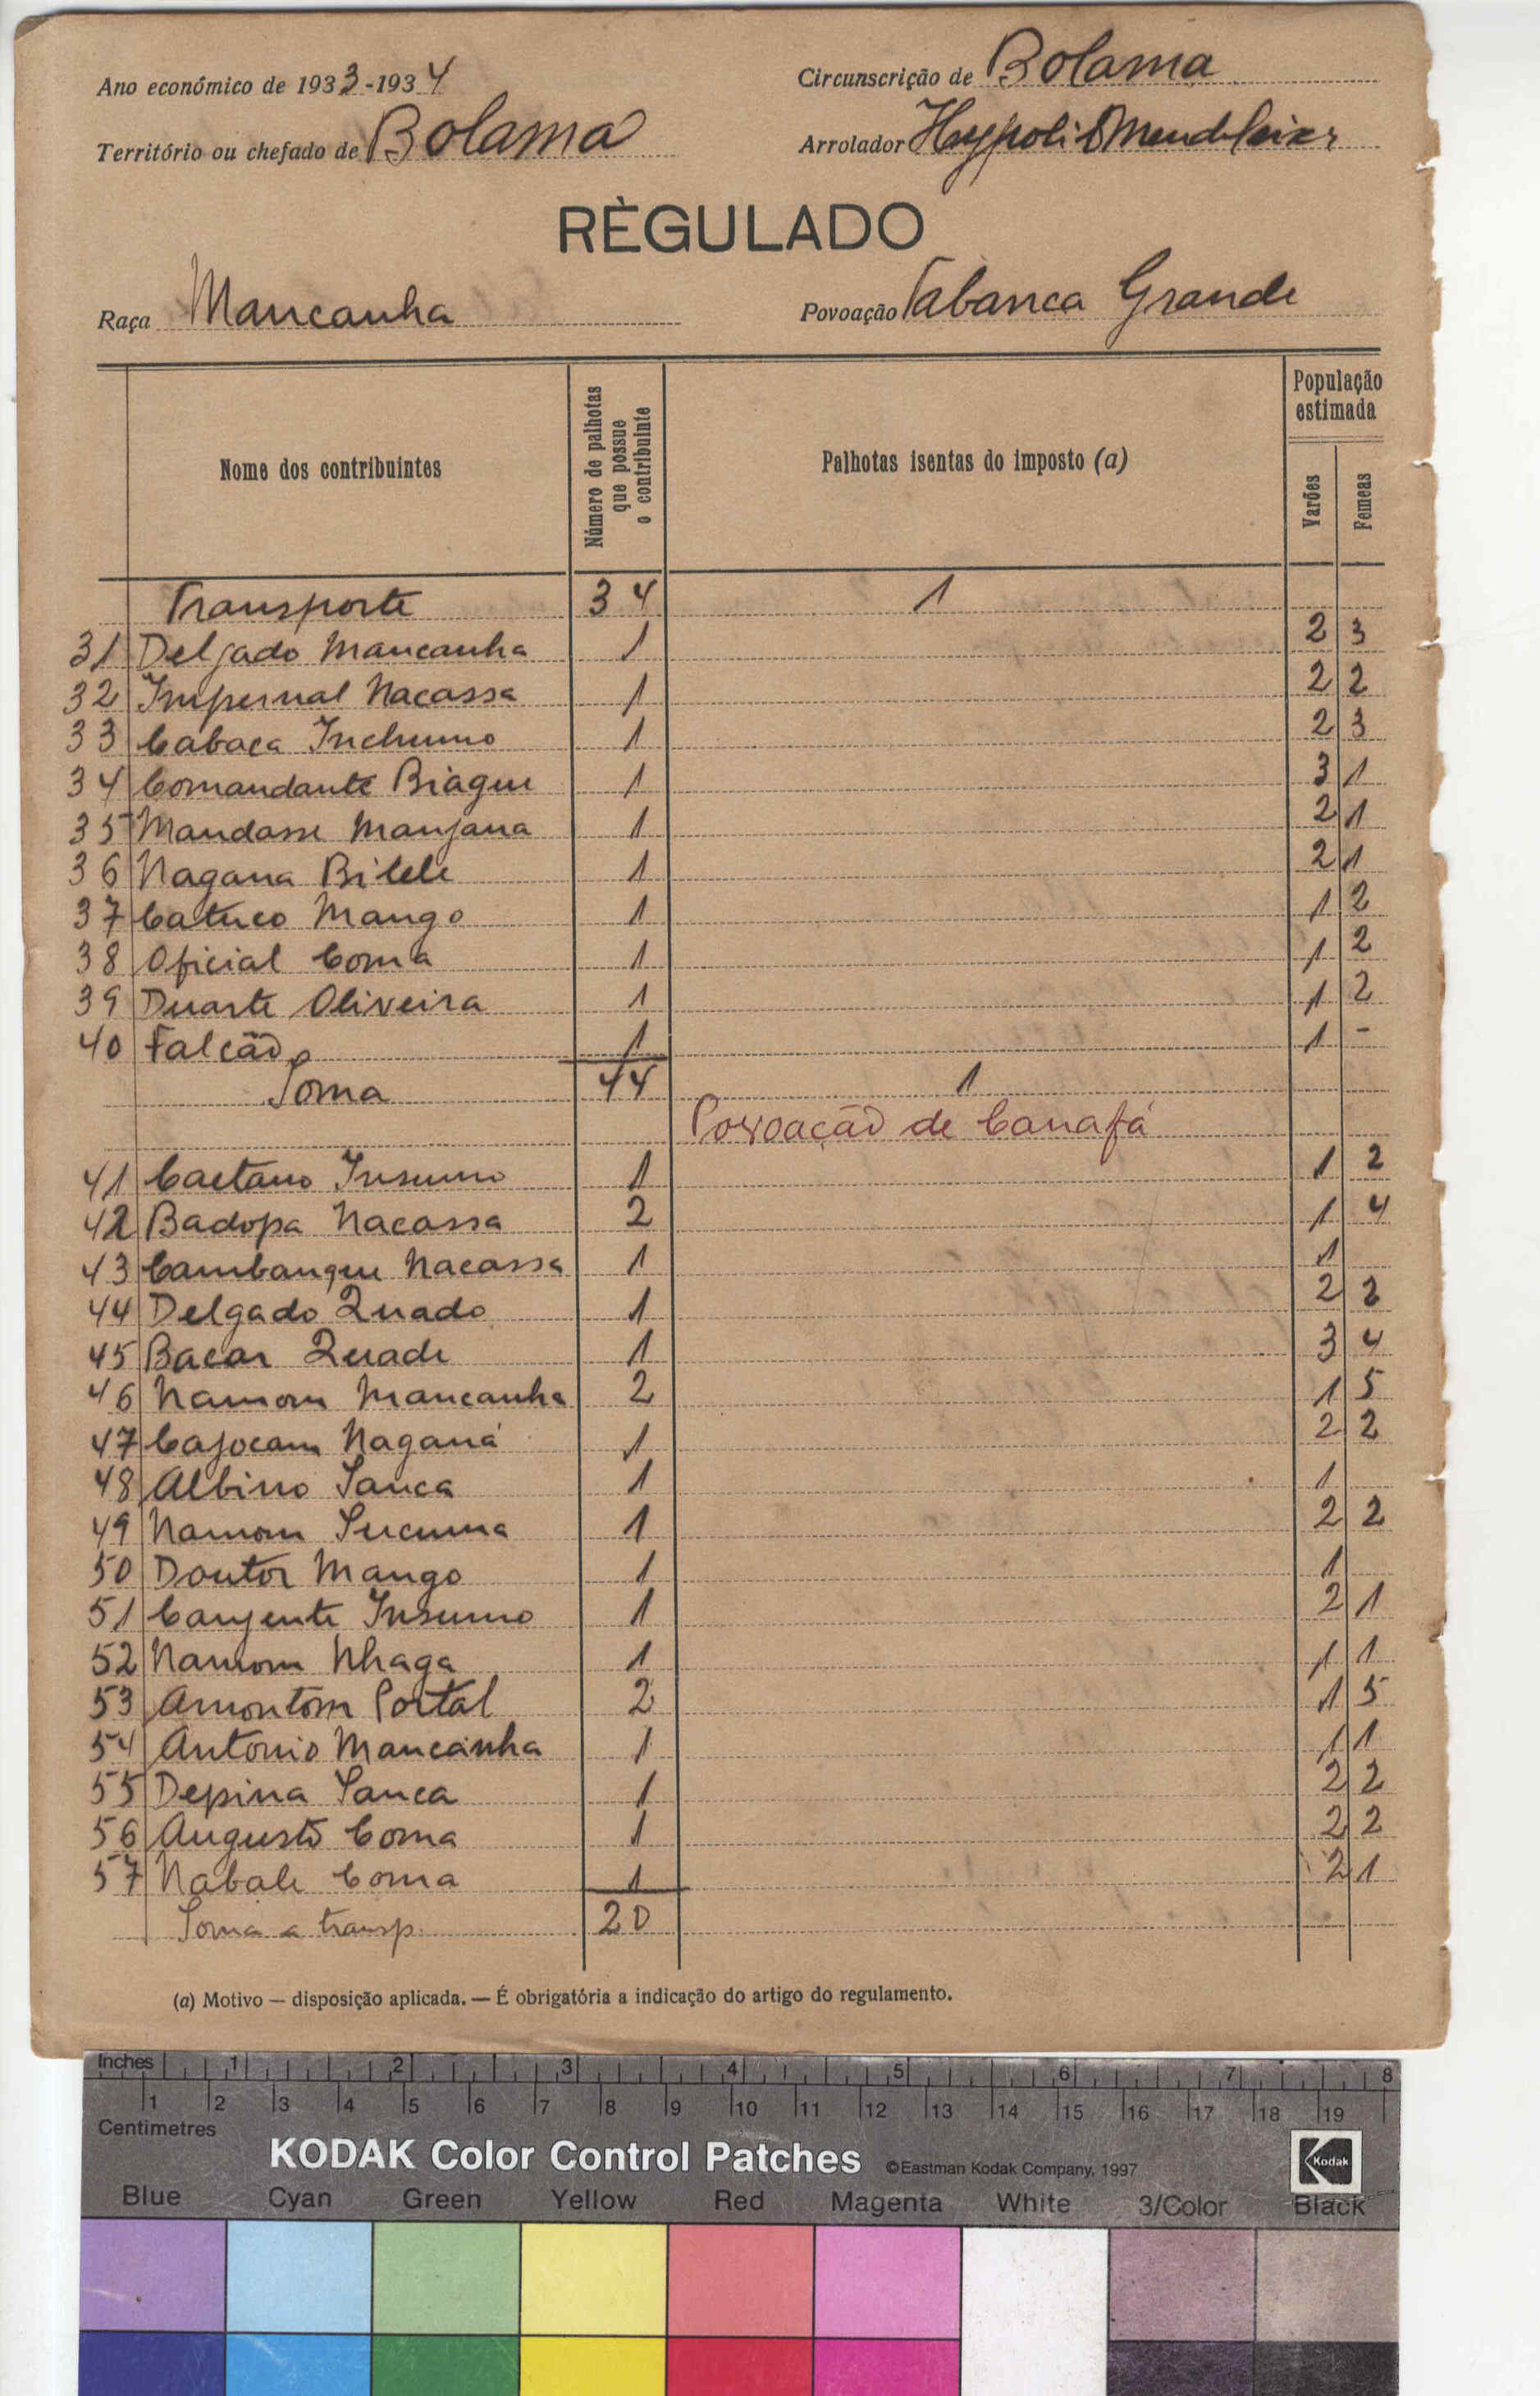 Ano económico de 1933-1934
Circunscrição de Bolama
Território ou chefado de Bolama
Arrolador Hypolit
RÈGULADO
Raça Mancanha
Povoação Tabanca Grande
Nome dos contribuintes
Número de palhotas que possue o contribuinte
Palhotas isentas do imposto (a)
População estimada
Varões
Femeas
Transporte 34 1
31 Delgado Mancanha 1 2 3
32 Impernal Nacassa 1 2 2
33 Cabaca Inchumo 1 2 3
34 Comandante Biague 1 3 1
35 Mandasse Manjana 1 2 1
36 Nagana Bilele 1 2 1
37 Catuco Mango 1 1 2
38 Oficial Coma 1 1 2
39 Duarte Oliveira 1 1 2
40 Falcão 1 1 -
Soma 44 1
Povoação de Canafá
41 Caetano Insumo 1 1 2
42 Badopa Nacassa 2 1 4
43 Cambangue Nacassa 1 1
44 Delgado Quado 1 2 2
45 Bacar Quade 1 3 4
46 Namom Mancanha 2 1 5
47 Cajocam Naganá 1 2 2
48 Albino Sanca 1 1
49 Namom Sucuma 1 2 2
50 Doutor Mango 1 1
51 Canjente Insumo 1 2 1
52 Namom Nhaga 1 1 1
53 Amontom Portal 2 1 5
54 Antonio Mancanha 1 1 1
55 Depina Sanca 1 2 2
56 Augusto Coma 1 2 2
57 Nabale Coma 1 2 1
Soma a transp. 20
(a) Motivo — disposição aplicada. — É obrigatória a indicação do artigo do regulamento.
Inches 1 2 3 4 5 6 7 8
1 2 3 4 5 6 7 8 9 10 11 12 13 14 15 16 17 18 19
Centimetres
KODAK Color Control Patches ©Eastman Kodak Company, 1997 Kodak
Blue Cyan Green Yellow Red Magenta White 3/Color Black